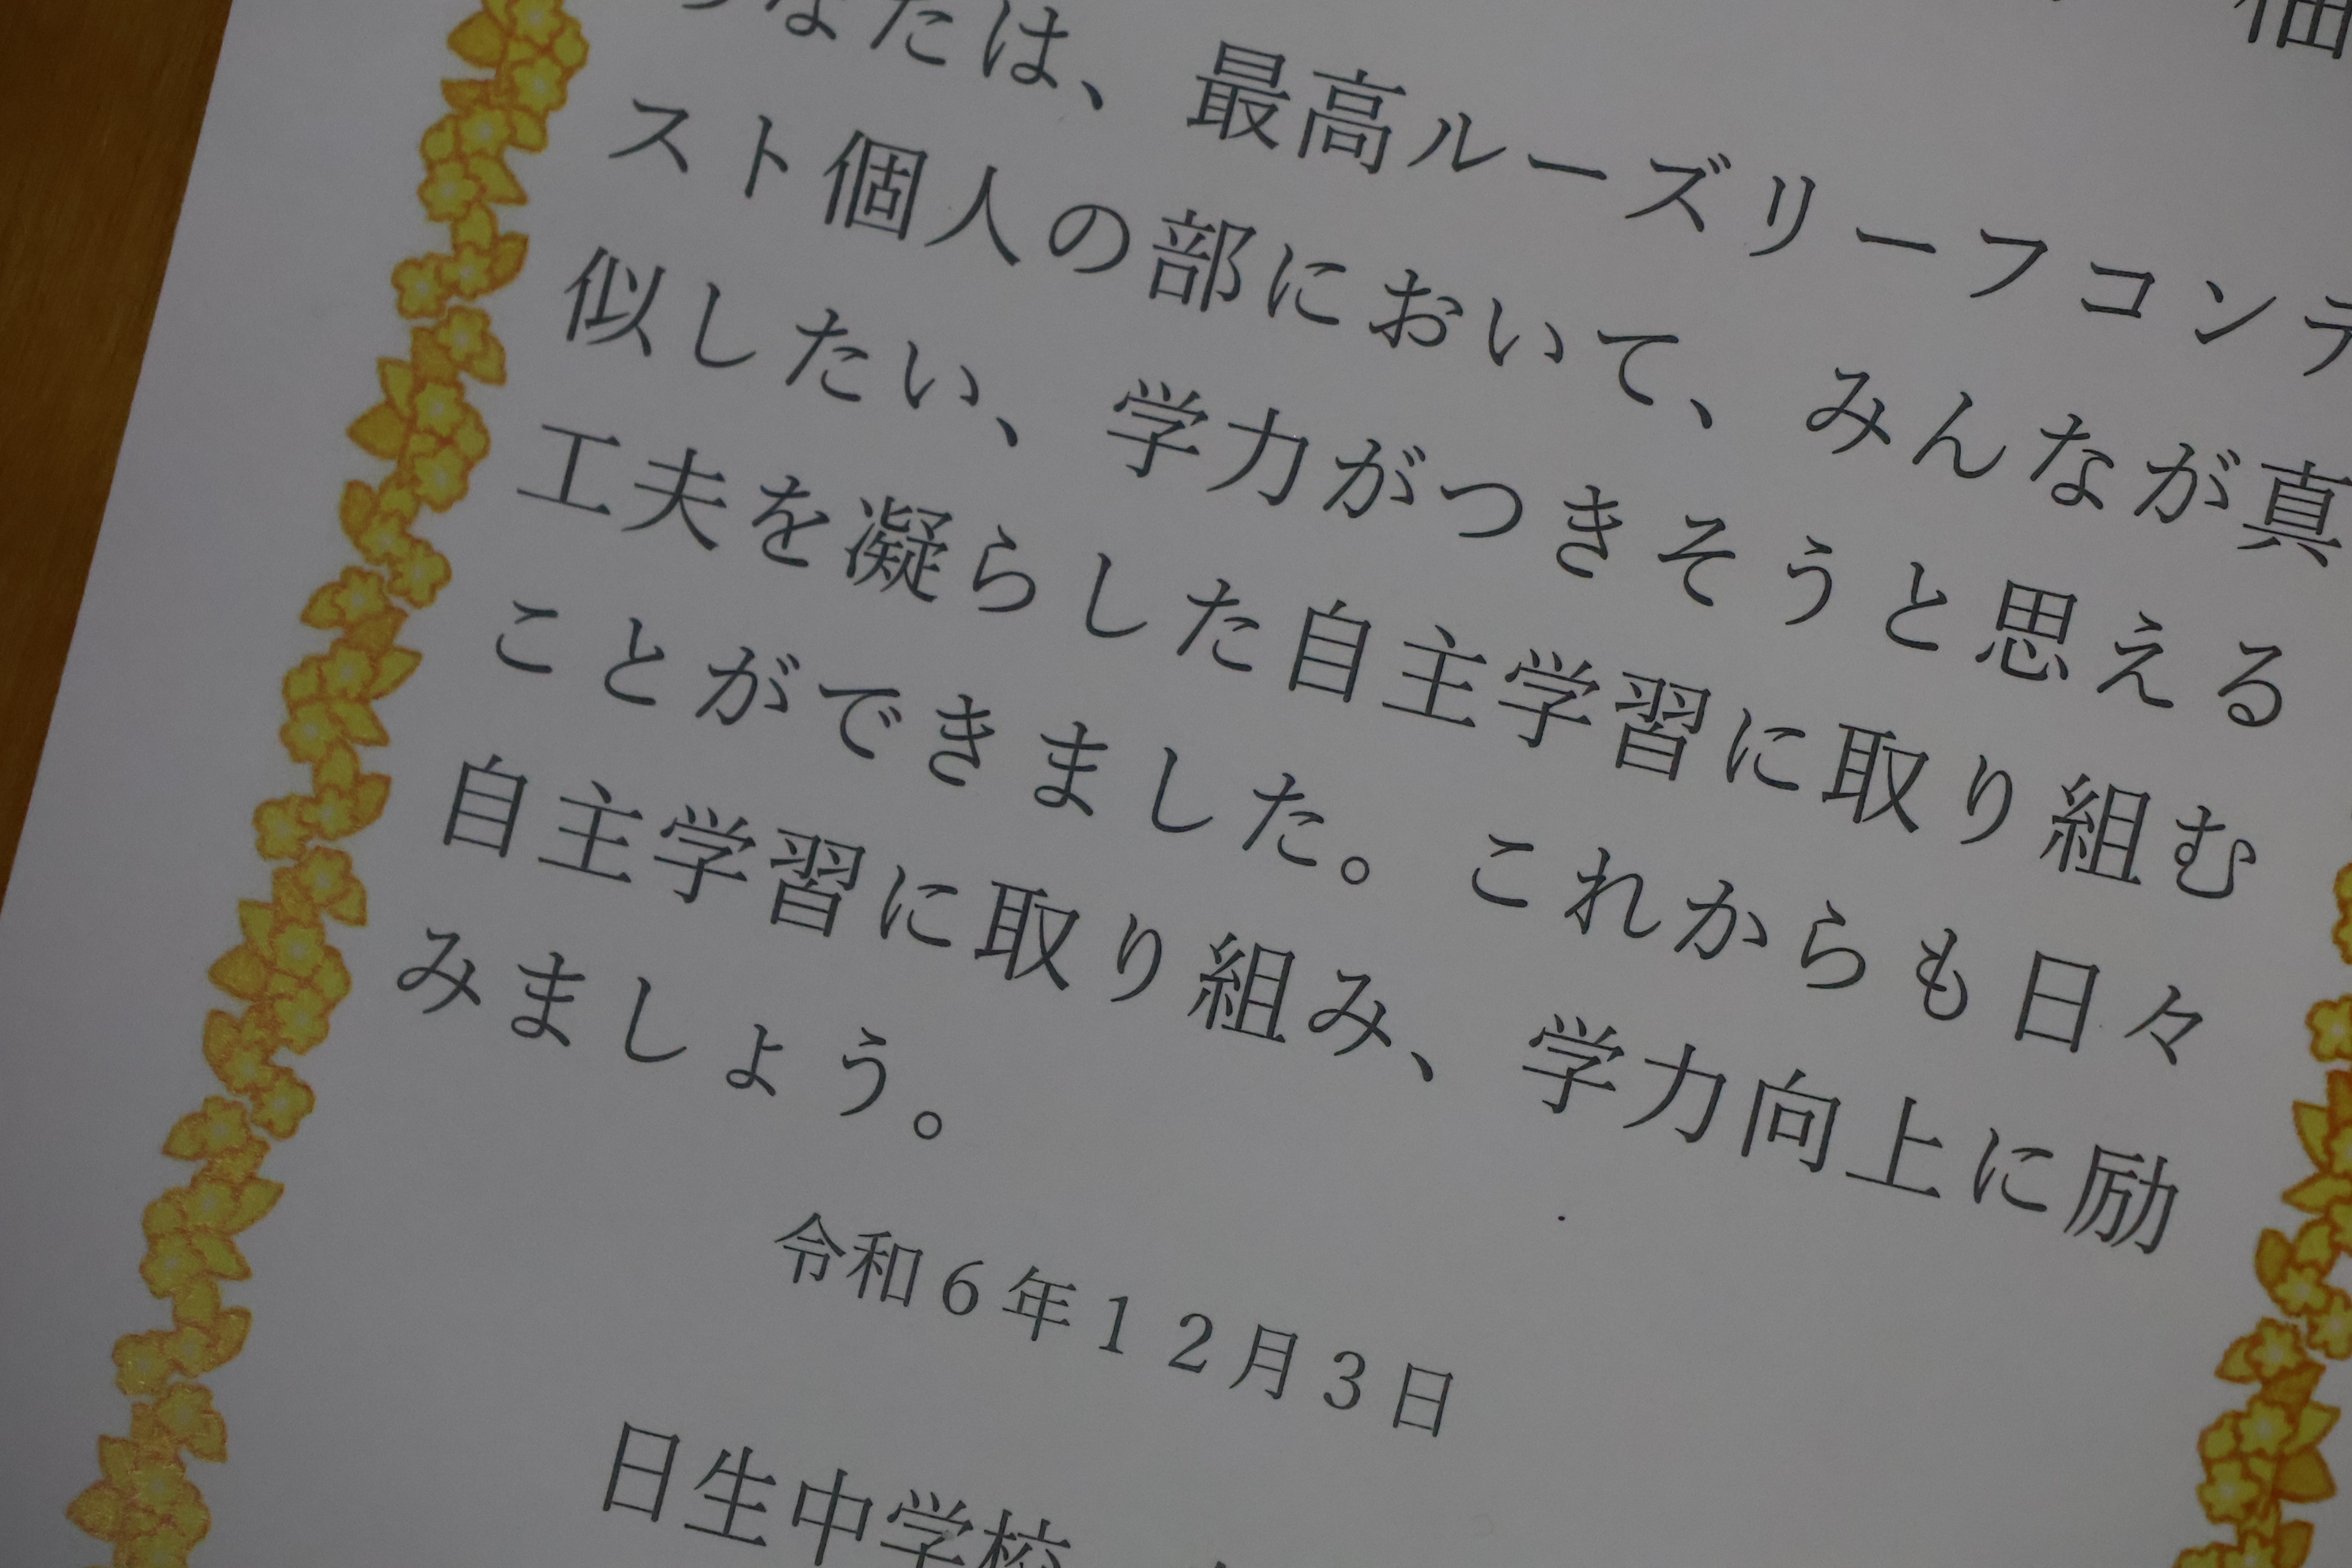 なたは、最高ルーズリーフコンテ
スト個人の部において、みんなが真
似したい、学力がつきそうと思える
工夫を凝らした自主学習に取り組む
ことができました。これからも日々
自主学習に取り組み、学力向上に励
みましょう。
令和６年１２月３日
日生中学校